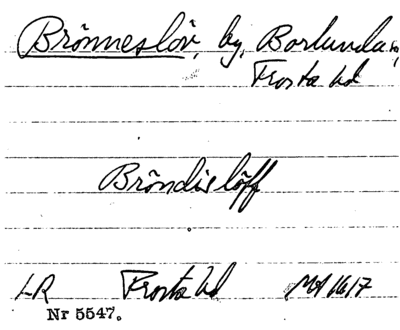 Brönneslöv, by, Borlunda sn,
Frosta hd
Bröndislöff
LR Frosta hd 1617
Nr 5547.